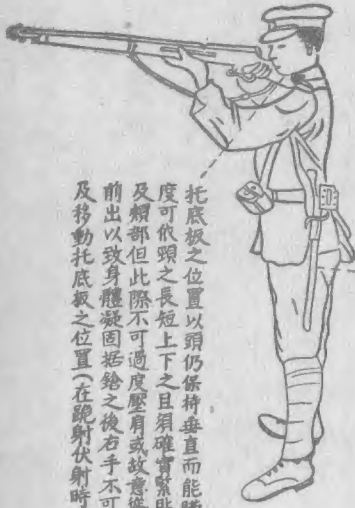 托底板之位置以頭仍保持垂直而能瞄
度可依頸之長短上下之且須確實緊貼
及頰部但此際不可過度壓肩或故意
前出以致身體凝固据鎗之後右手不可
及移動托底板之位置(在跪射伏射時